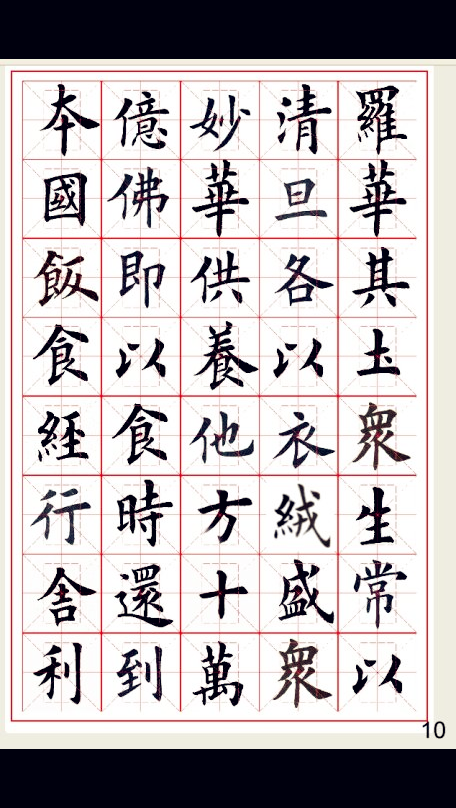 羅華其土眾生常以
清旦各以衣絨盛眾
妙華供養他方十萬
億佛即以食時還到
本國飯食經行舎利
10